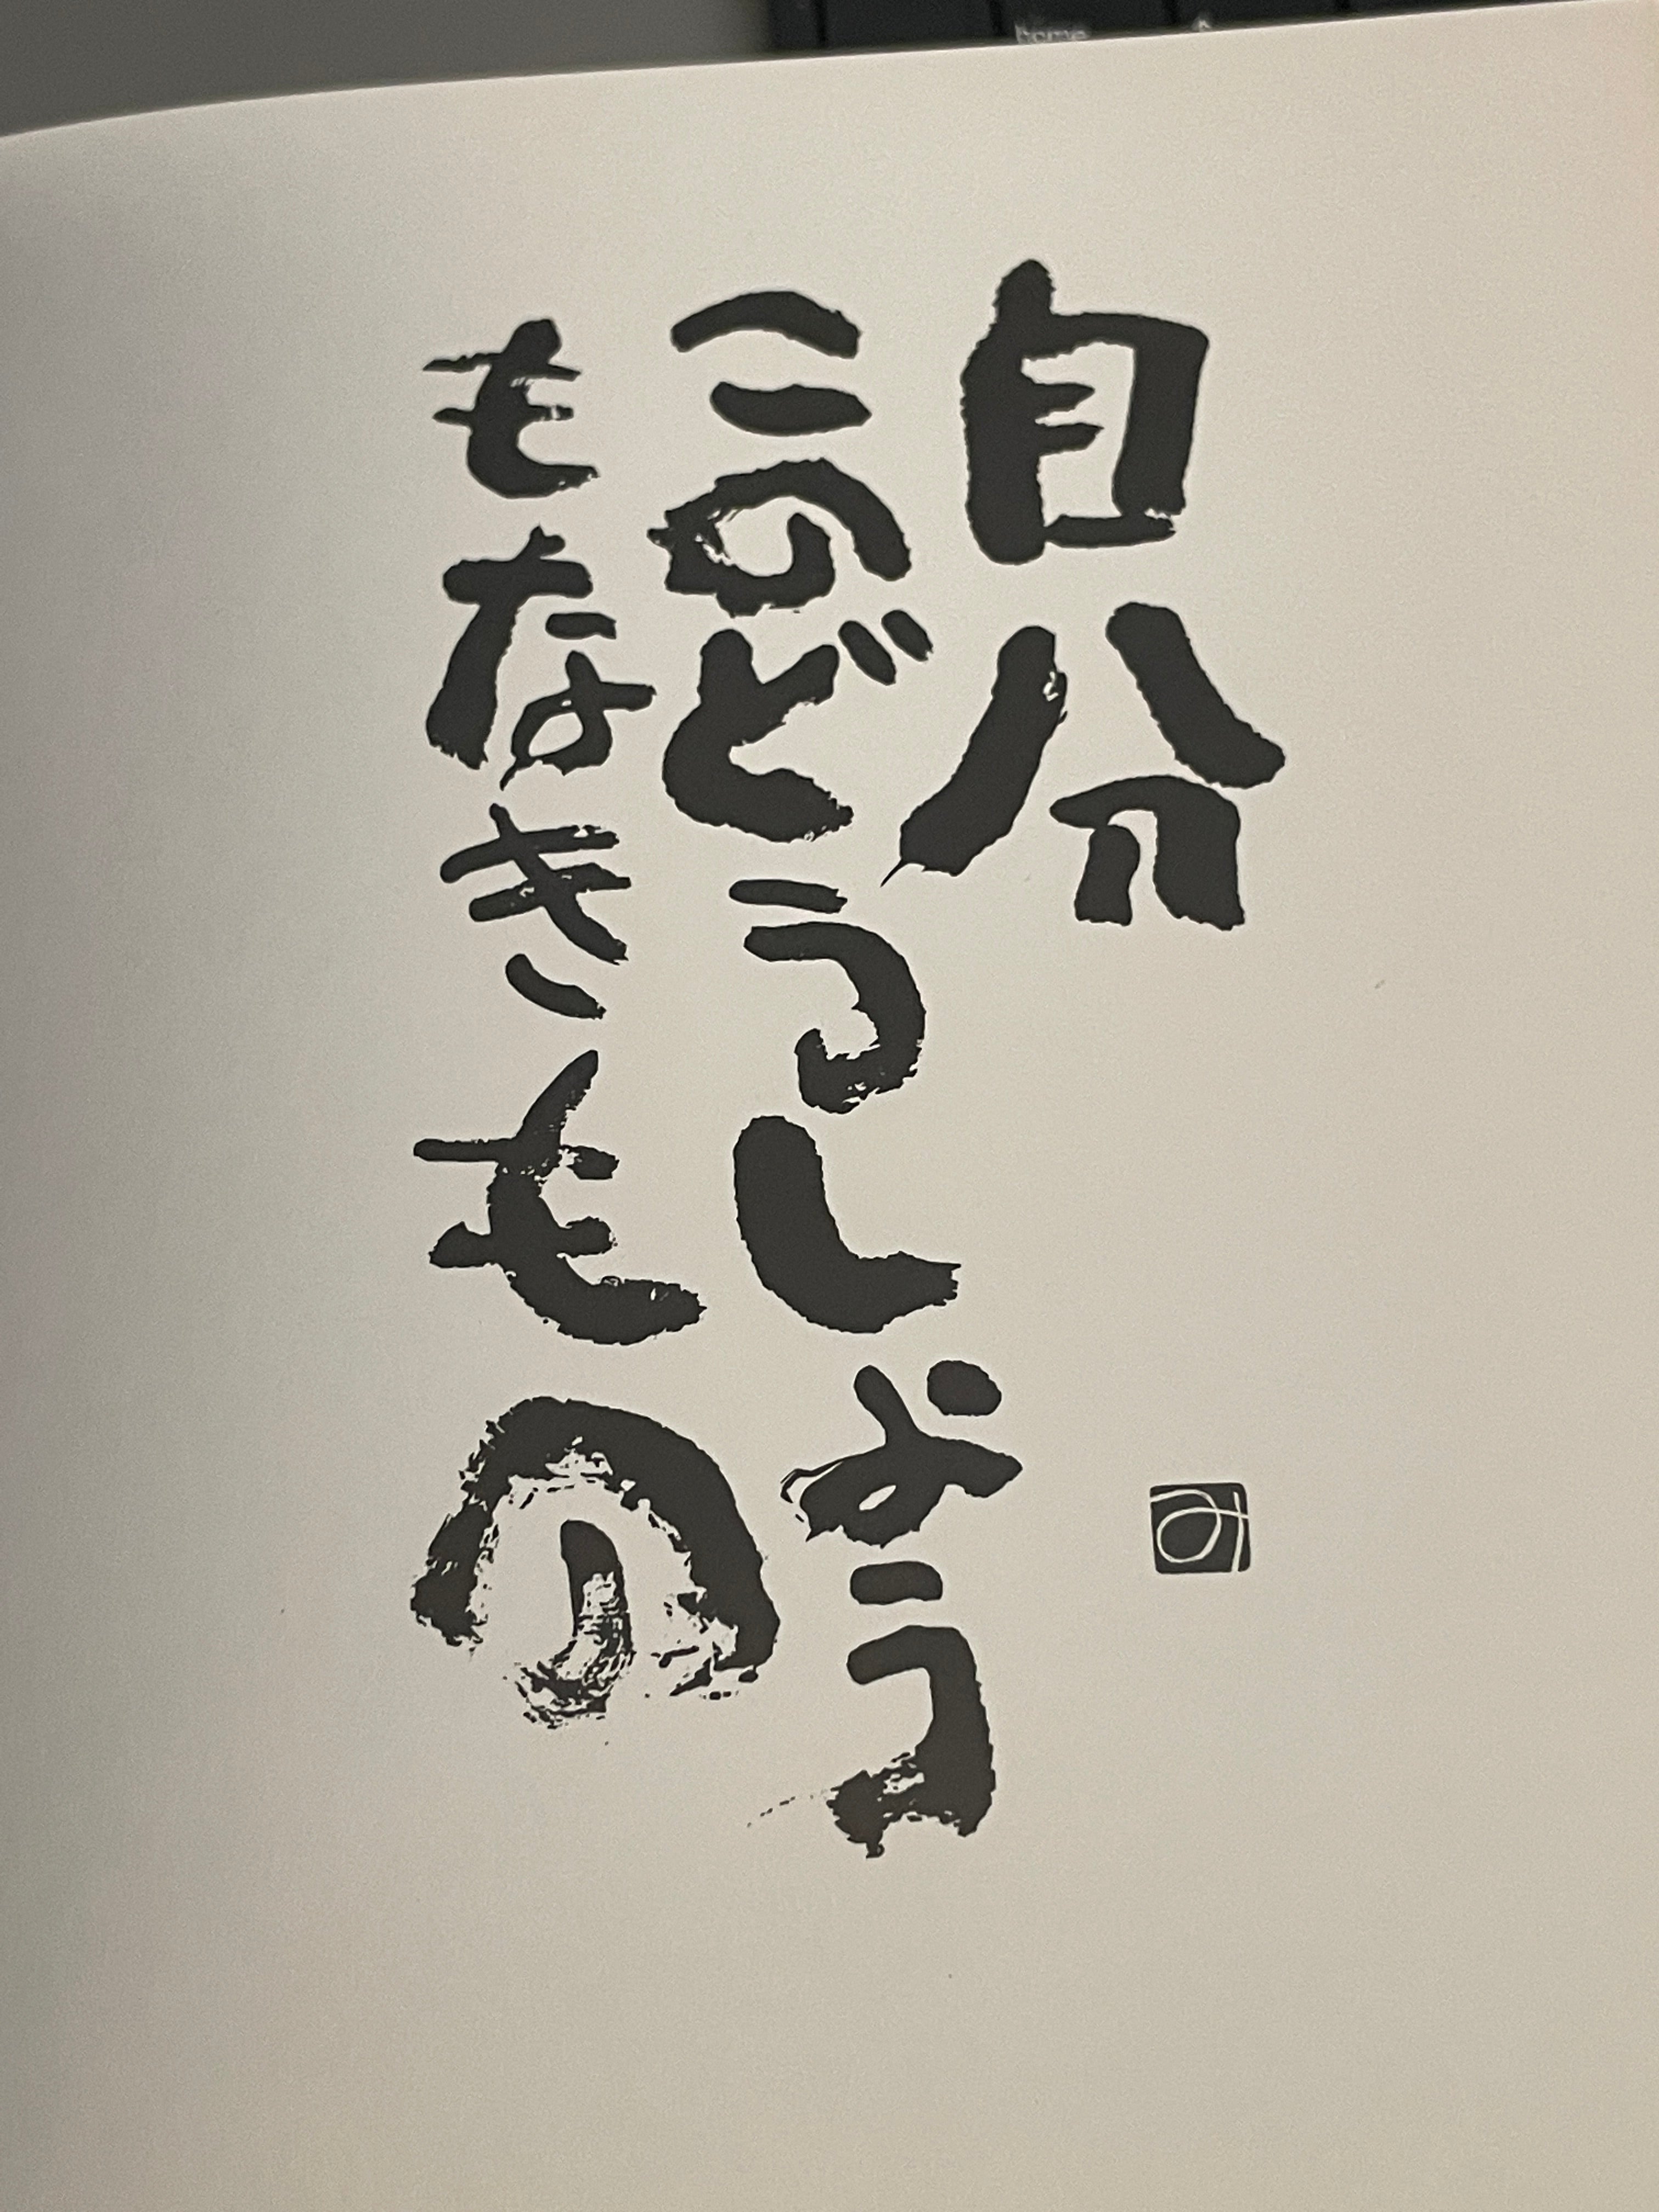 自分
このどうしようこ
もなきもの
み
home